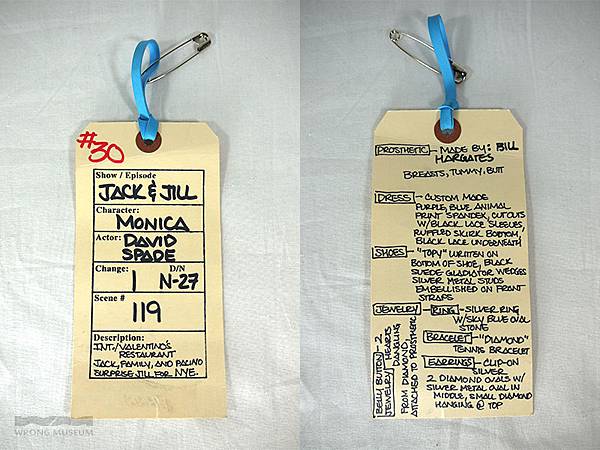 #30
Show / Episode
JACK & JILL
Character:
MONICA
Actor: DAVID
SPADE
Change: D/N
1 N-27
Scene #
119
Description:
INT./VALENTINO'S
RESTAURANT
JACK, FAMILY, AND PACINO
SURPRISE JILL FOR NYE.
WRONG MUSEUM
PROSTHETIC - MADE BY: BILL
HARGATES
BREASTS, TUMMY, BUTT
DRESS - CUSTOM MADE
PURPLE, BLUE ANIMAL
PRINT SPANDEX, CUTOUTS
W/BLACK LACE SLEEVES,
RUFFLED SKIRT BOTTOM,
BLACK LACE UNDERNEATH
SHOES - "TOPY" WRITTEN ON
BOTTOM OF SHOE, BLACK
SUEDE GLADIATOR WEDGES
SILVER METAL STUDS
EMBELLISHED ON FRONT
STRAPS
JEWELRY - RING - SILVER RING
W/SKY BLUE OVAL
STONE
BRACELET - "DIAMOND"
TENNIS BRACELET
EARRINGS - CLIP-ON
SILVER
2 DIAMOND OVALS W/
SILVER METAL OVAL IN
MIDDLE, SMALL DIAMOND
HANGING @ TOP
BELLY BUTTON - 2
JEWELRY HEARTS
DANGLING
FROM DIAMOND,
ATTACHED TO PROSTHETIC